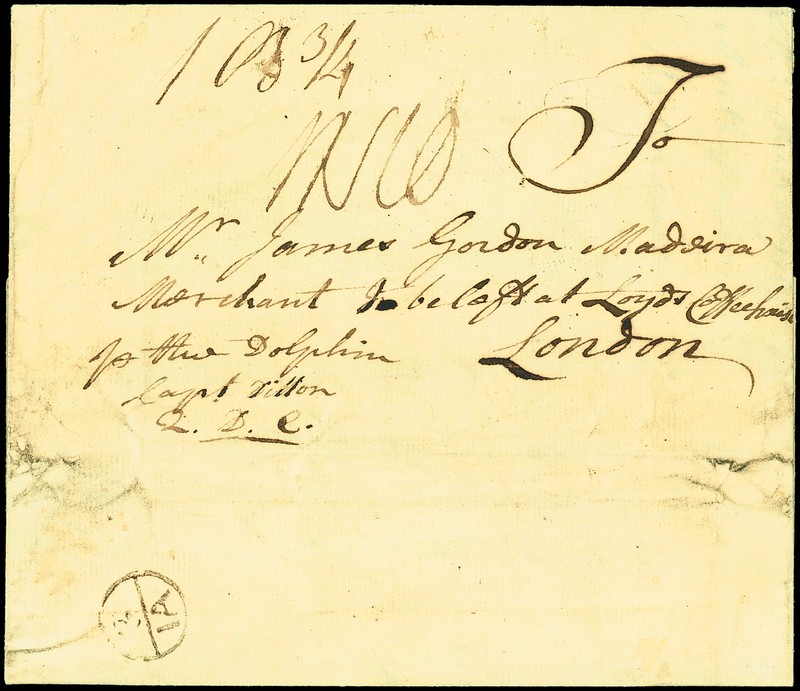 1 3/4
To
Mr. James Gordon Madeira
Merchant to be left at Loyds Coffeehouse
London
p the Dolphin
Capt Dillon
Q. D. C.
IA